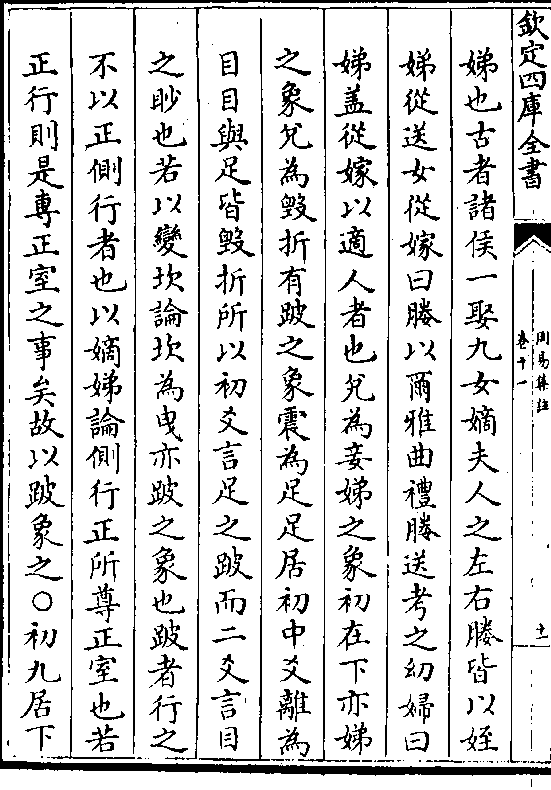 欽定四庫全書
周易集註
卷十一
十一
娣也古者諸侯一娶九女嫡夫人之左右媵皆以姪
娣從送女從嫁曰媵以爾雅曲禮媵送考之幼婦曰
娣盖從嫁以適人者也兌為妾娣之象初在下亦娣
之象兌為毀折有跛之象震為足足居初中爻離為
目目與足皆毀折所以初爻言足之跛而二爻言目
之眇也若以變坎論坎為曳亦跛之象也跛者行之
不以正側行者也以嫡娣論側行正所尊正室也若
正行則是專正室之事矣故以跛象之○初九居下